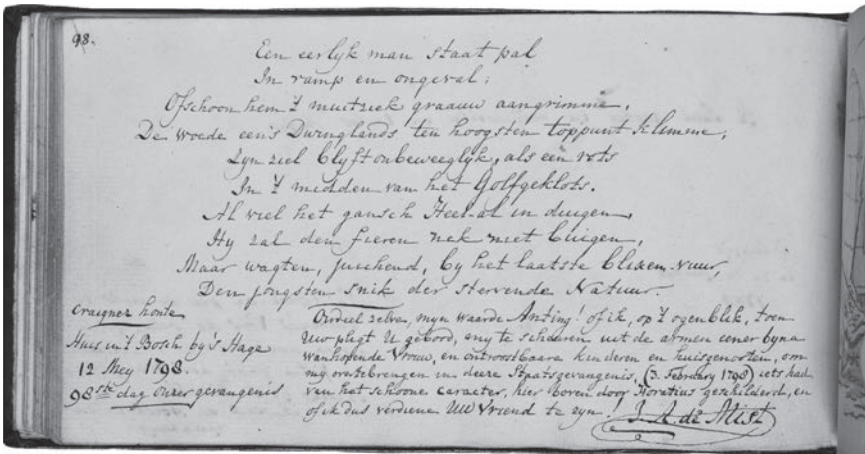 98.
Een eerlyk man staat pal
In ramp en ongeval;
Ofschoon hem 't muitziek graauw aangrimme,
De woede eens Dwinglands ten hoogsten toppunt klimme,
Zyn ziel blyft onbeweeglyk, als een rots
In 't midden van het Golfgeklots.
Al viel het gansch Heel-al in duigen,
Hy zal den fieren nek niet buigen,
Maar wagten, juichend, by het laatste blixem-vuur,
Den jongsten snik der stervende Natuur.
craignez honte
Huis in 't Bosch by 's Hage
12 Mey 1798.
98ste dag onzer gevangenis
Oordeel zelve, myn waarde Anting! of ik, op 't ogenblik, toen
Uw pligt U gebood, my te scheuren uit de armen eener byna
wanhopende Vrouw, en ontroostbaare kinderen en huisgenooten, om
my overtebrengen in deeze Staatsgevangenis, (3. February 1798) iets had
van het schoone caracter, hier boven door Horatius geschilderd, en
of ik dus verdiene UW Vriend te zyn!
J. A. de Mist